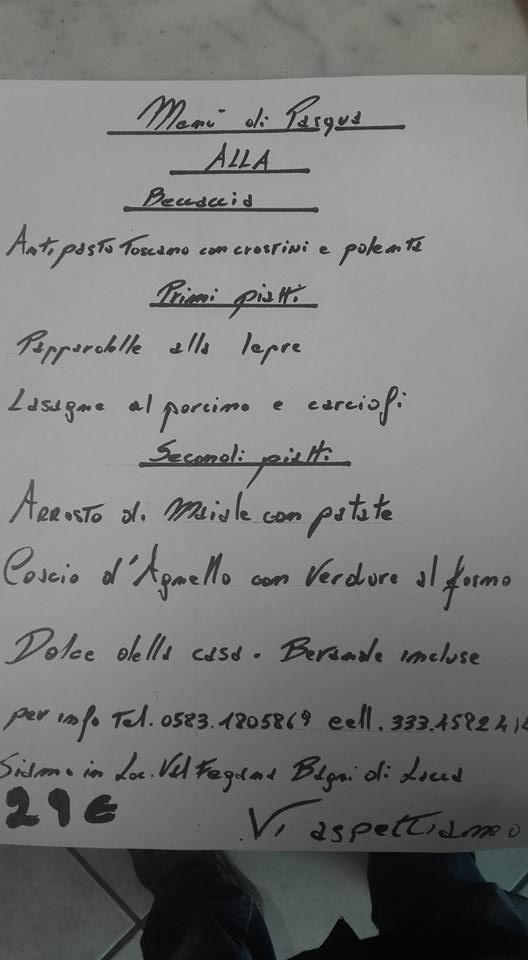 Menù di Pasqua
ALLA
Beccaccia
Antipasto Toscano con crostini e polenta
Primi piatti
Pappardelle alla lepre
Lasagne al porcino e carciofi
Secondi piatti
ARROSTO di Maiale con patate
Coscio d'Agnello con Verdure al forno
Dolce della casa. Bevande incluse
per info Tel. 0583.1805869 cell.
Siamo in Loc. Val Fegana Bagni di Lucca
29€
Vi aspettiamo